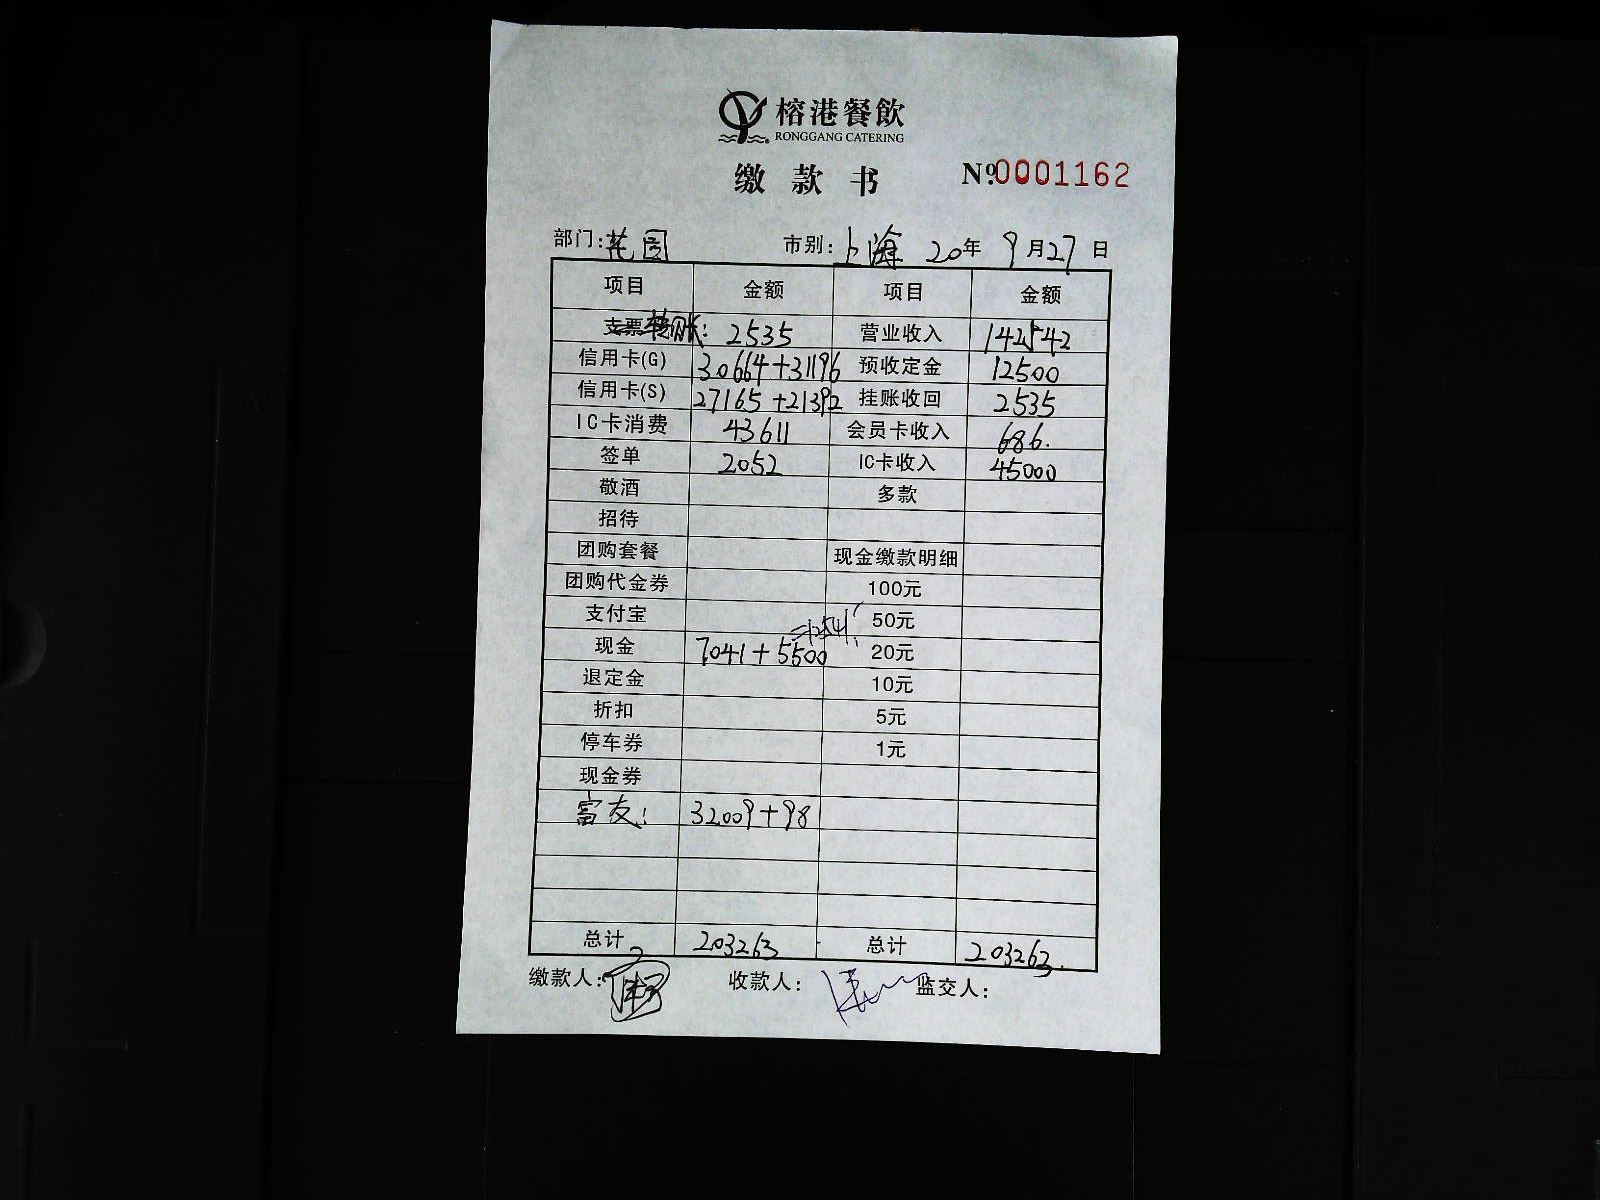 榕港餐飲
RONGGANG CATERING
缴款书 №0001162
部门:花园 市别:上海 20年9月27日
项目 金额 项目 金额
转账: 2535 营业收入 142542
信用卡(G) 30664+31196 预收定金 12500
信用卡(S) 27165+21392 挂账收回 2535
IC卡消费 43611 会员卡收入 686.
签单 2052 IC卡收入 45000
敬酒 多款
招待
团购套餐 现金缴款明细
团购代金券 100元
支付宝 50元
=12541
现金 7041+5500 20元
退定金 10元
折扣 5元
停车券 1元
现金券
富友: 32009+98
总计 203263 总计 203263.
缴款人: 收款人: 监交人: